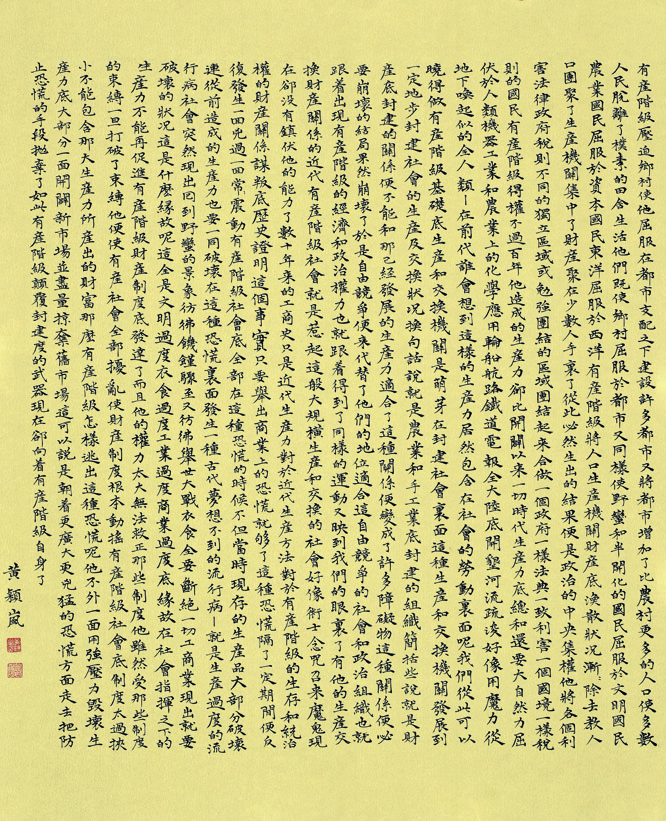 有產階級壓迫鄉村使他屈服在都市支配之下建設許多都市又將都市增加了比農村更多的人口使多數
人民脫離了樸素的田舍生活他們既使鄉村屈服於都市又同樣使野蠻和半開化的國民屈服於文明國民
農業國民屈服於資本國民東洋屈服於西洋有產階級將人口生產機關財產底渙散狀況漸〻除去教人
口團聚了生產機關集中了財產聚在少數人手裏了從此必然生出的結果便是政治的中央集權他將各個利
害法律政府稅則不同的獨立區域或勉強團結的區域團結起來合做一個政府一樣法典一致利害一個國境一樣稅
則的國民有產階級得權不過百年他造成的生產力卻比開闢以來一切時代生產力底總和還要大自然力屈
伏於人類機器工業和農業上的化學應用輪船航路鐵道電報全大陸底開墾河流疏浚好像用魔力從
地下喚起似的全人類—在前代誰會想到這樣的生產力居然包含在社會的勞動裏面呢我們從此可以
曉得做有產階級基礎底生產和交換機關是萌芽在封建社會裏面這種生產和交換機關發展到
一定地步封建社會的生產及交換狀況換句話說就是農業和手工業底封建的組織簡括些說就是財
產底封建的關係便不能和那已經發展的生產力適合了這種關係便變成了許多障礙物這種關係便必
要崩壞的結局果然崩壞了於是自由競爭便來代替了他們的地位適合這自由競爭的社會和政治組織也就
跟着出現有產階級的經濟和政治權力也就跟着得到了同樣的運動又映到我們的眼裏了有他的生產交
換財產關係的近代有產階級社會就是惹起這般大規模生產和交換的社會好像術士念咒召來魔鬼現
在卻沒有鎮伏他的能力了數十年來的工商史只是近代生產力對於近代生產方法對於有產階級的生存和統治
權的財產關係謀叛底歷史證明這個事實只要舉出商業上的恐慌就夠了這種恐慌隔了一定期間便反
復發生一回兇過一回常震動有產階級社會底全部在這種恐慌的時候不但當時現存的生產品大部分破壞
連從前造成的生產力也要一同破壞在這種恐慌裏面發生一種古代夢想不到的流行病—就是生產過度的流
行病社會突然現出回到野蠻的景象彷彿饑饉驟至又彷彿舉世大戰衣食全要斷絕一切工商業現出就要
破壞的狀況這是什麼緣故呢這全是文明過度衣食過度工業過度商業過度底緣故在社會指揮之下的
生產力不能再促進有產階級財產制度底發達了而且他的權力太大無法救正那些制度他雖然受那些制度
的束縛一旦打破了束縛他便使有產社會全部擾亂使財產制度根本動搖有產階級社會底制度太過狹
小不能包含那大生產力所產出的財富那麼有產階級怎樣逃出這種恐慌呢他不外一面用強壓力毀壞生
產力底大部分一面開闢新市場並盡量掠奪舊市場這可以說是朝着更廣大更兇猛的恐慌方面走去把防
止恐慌的手段拋棄了如此有產階級顛覆封建度的武器現在卻向着有產階級自身了
黃穎嵐